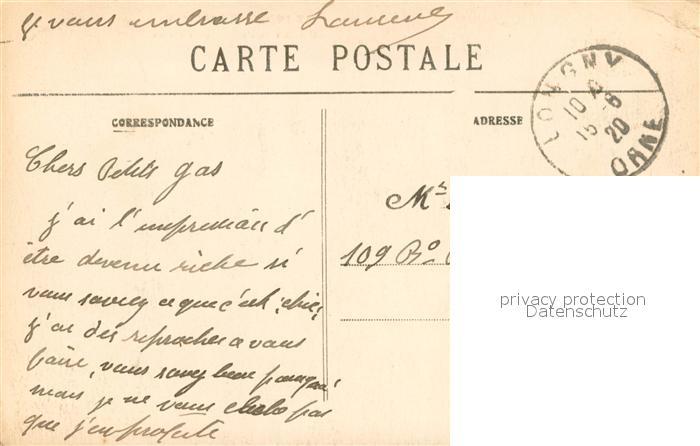 Je vous embrasse
CARTE POSTALE
CORRESPONDANCE
ADRESSE
LONGNY
10
15-8
20
ORNE
Chers Petits gas
j'ai l'impression d'
être devenu riche si
vous saviez ce que c'est
j'ai des reproches a vous
faire, vous savez bien pourquoi
mais je ne vous pas
que j'en profite
Mr
109 Bd
privacy protection
Datenschutz